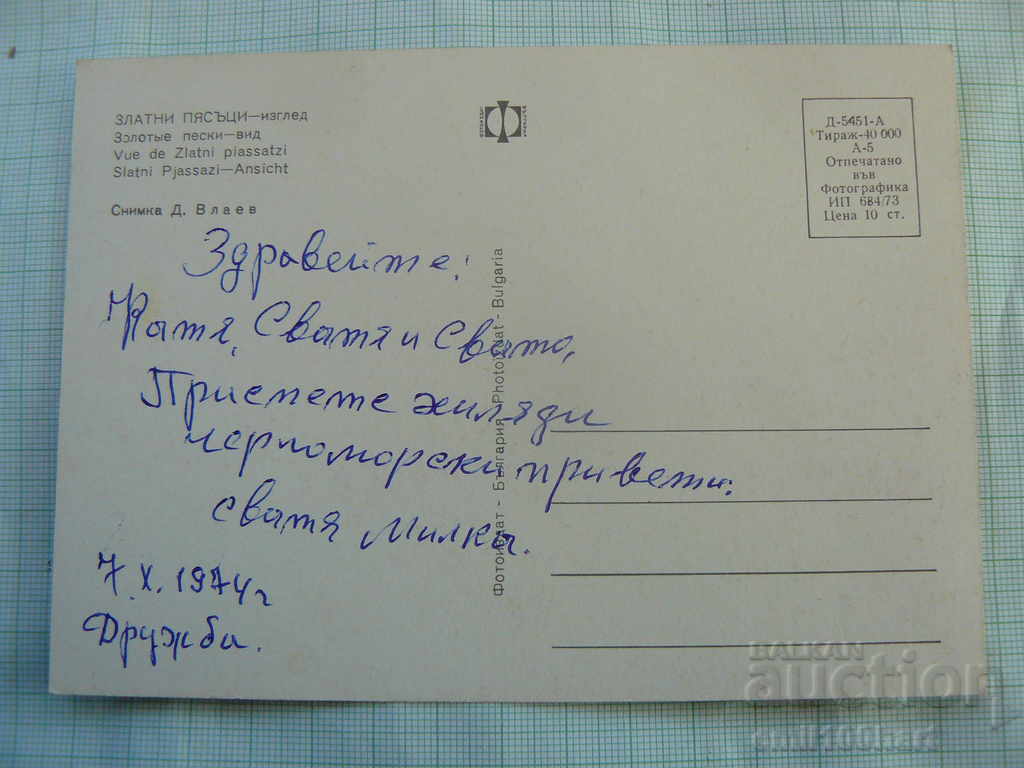 ЗЛАТНИ ПЯСЪЦИ—изглед
Золотые пески—вид
Vue de Zlatni piassatzi
Slatni Pjassazi—Ansicht
Снимка Д. Влаев
Д-5451-А
Тираж-40 000
А-5
Отпечатано
във
Фотографика
ИП 684/73
Цена 10 ст.
Фотоиздат - България - Photoizdat - Bulgaria
Здравейте!
Катя, Сватя и Свато,
Приемете хиляди
черноморски привети:
сватя Милка.
7.X.1974г
Дружба.
BALKAN
auction
emil100hari